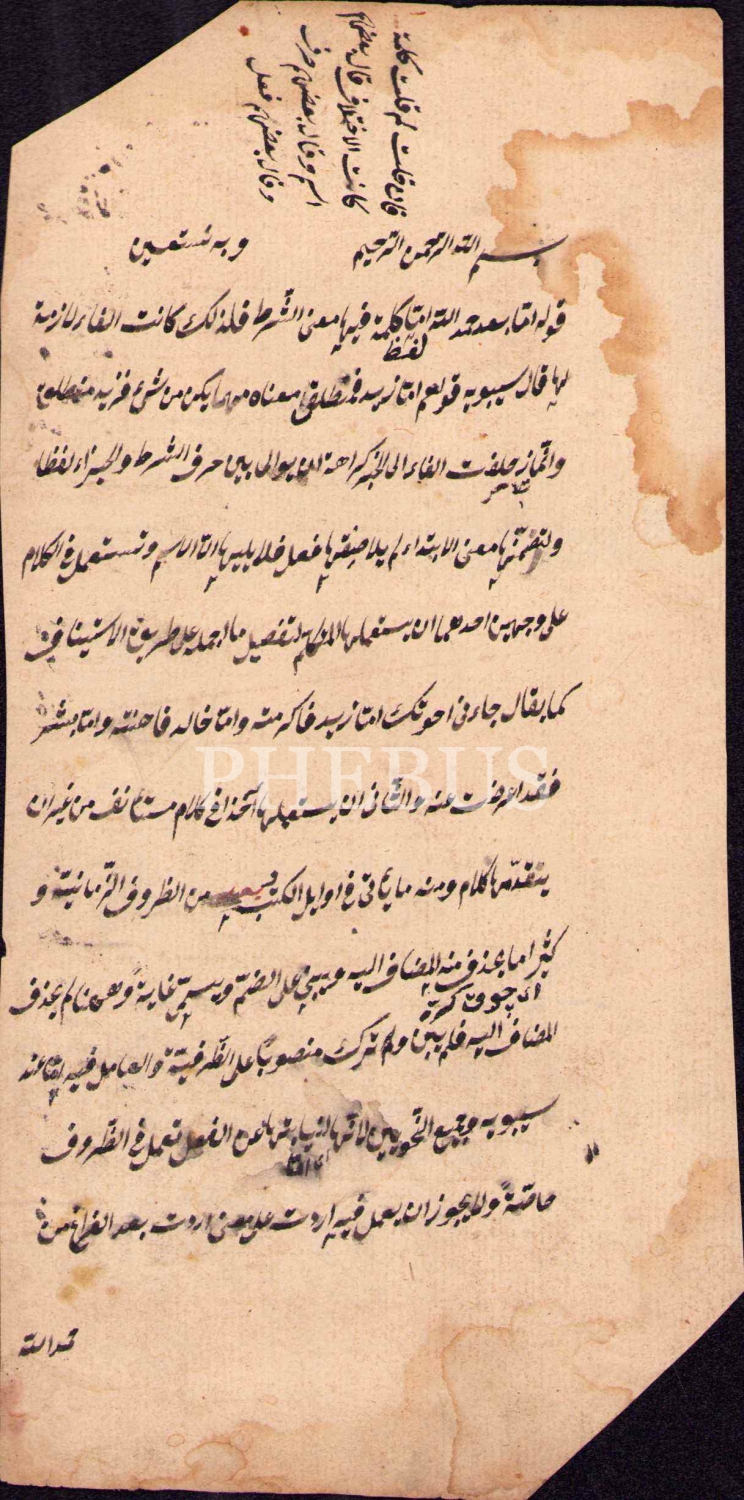 فان قلت لم قلت كلمة
كانت الاختلاف قال بعضهم
اسم وقال بعضهم حرف
وقال بعضهم فعل
بسم الله الرحمن الرحيم وبه نستعين
قوله اما بعد حمد الله اما كلمة فيها معنى الشرط فلذلك كانت الفاء لازمة
لفظ
لها قال سيبويه قولهم اما زيد فمنطلق معناه مهما يكن من شئ فزيد منطلق
وانما زحلفت الفاء الى الخبر كراهة ان يوالى بين حرفى الشرط والجزاء لفظا
ولتضمنها معنى الابتداء لم يلاصقها فعل فلا يليها الا الاسم وتستعمل فى الكلام
على وجهين احدهما ان يستعملها المتكلم لتفصيل ما اجمله على طريق الاستيناف
كما يقال جاءنى اخوتك اما زيد فاكرمته واما خالد فاهنته واما بشر
فقد اعرضت عنه والثانى ان يستعملها آخذا فى كلام مستأنف من غير ان
يتقدمها كلام ومنه ما يأتى فى اوايل الكتب وبعد من الظروف الزمانية و
كثيرا ما يحذف منه المضاف اليه ويبنى على الضم ويسمى غاية وههنا لم يحذف
اى
المضاف اليه فلم يبن ولم يترك منصوبا على الظرفية والعامل فيه اما عند
سيبويه وجميع النحويين لانها لنيابتها عن الفعل تعمل فى الظروف
خاصة ولا يجوز ان يعمل فيه اردت على معنى اردت بعد الفراغ من
حمد الله
PHEBUS